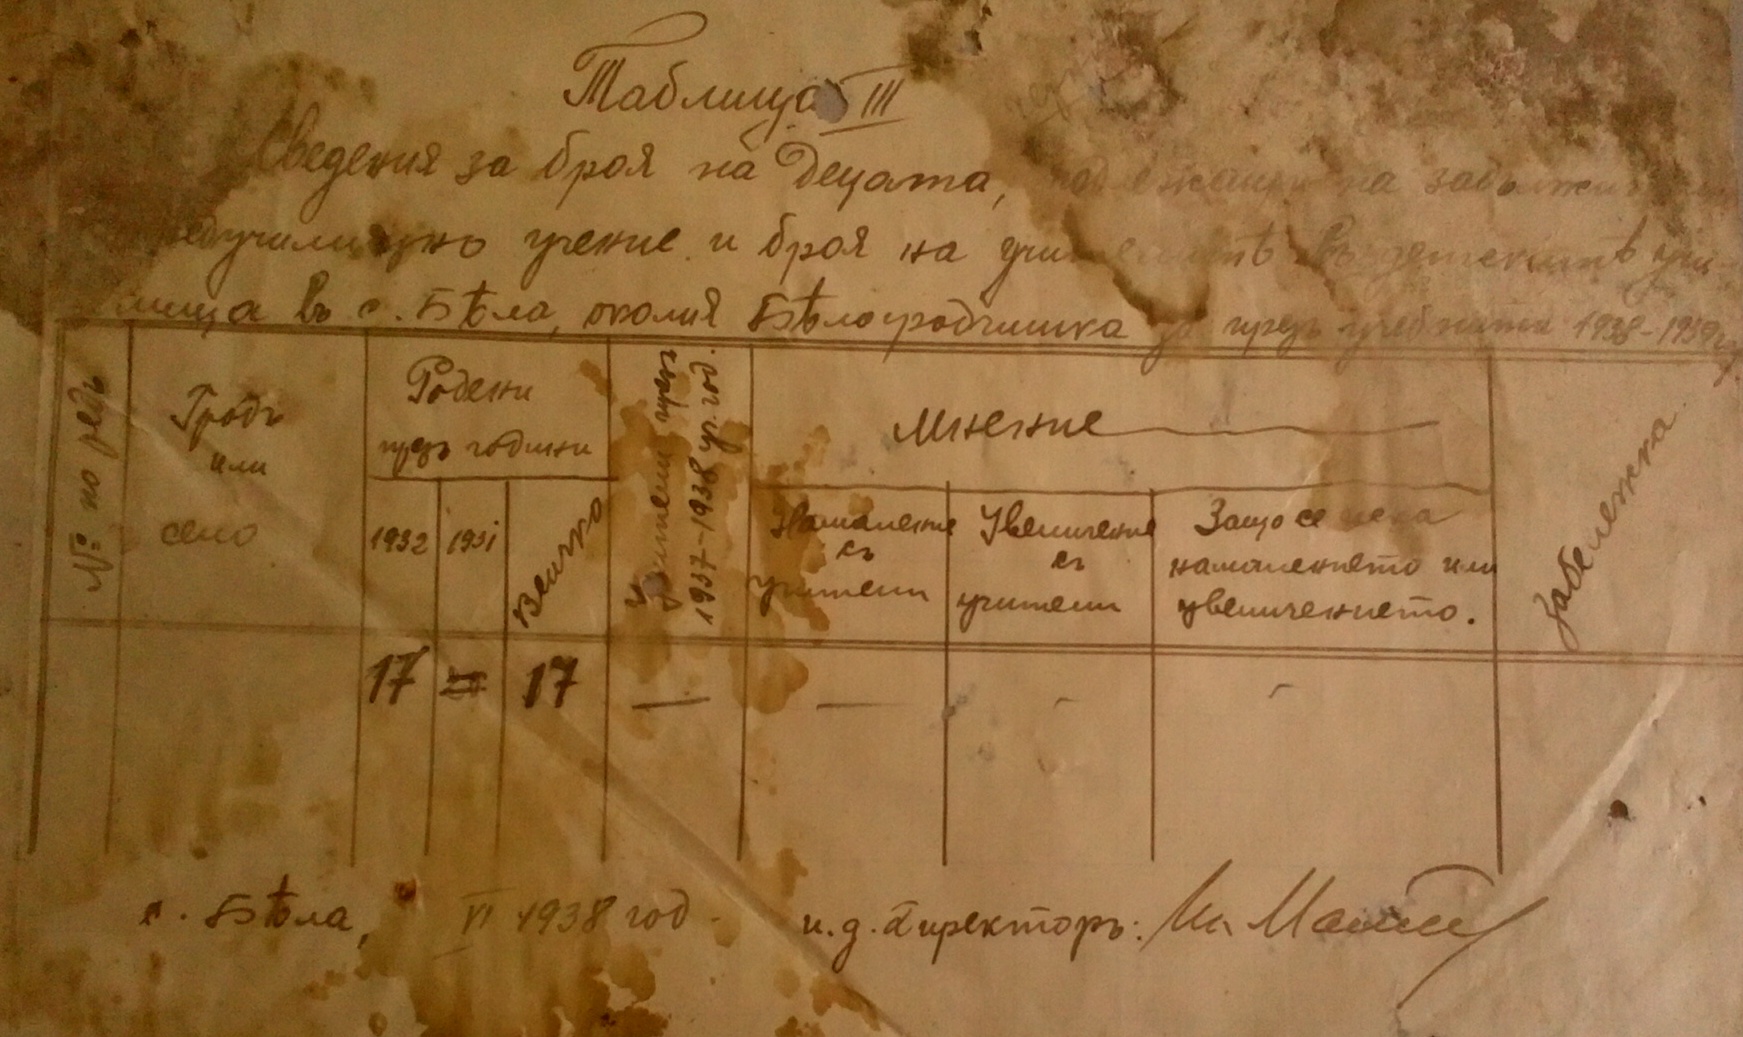 Таблица III
Сведения за броя на децата, на
учение и броя на
лища въ с. Бѣла, околия Бѣлоградчишка за презъ учебната 1938-1939 г.
№ по редъ
Градъ
или
село
Родени
презъ години
1932
1931
Всичко
Учители презъ
1937-1938 уч. год.
Мнение
Намаление
съ
учители
Увеличение
съ
учители
Защо се иска
намалението или
увеличението.
Забележка
17 = 17 — — - -
с. Бѣла, VI 1938 год.
и. д. Директоръ: